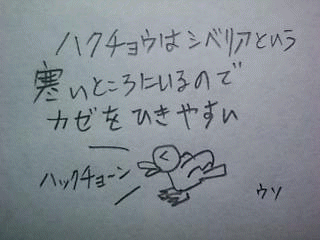 ハクチョウはシベリアという
寒いところにいるので
カゼをひきやすい
ハックチョーン
ウソ